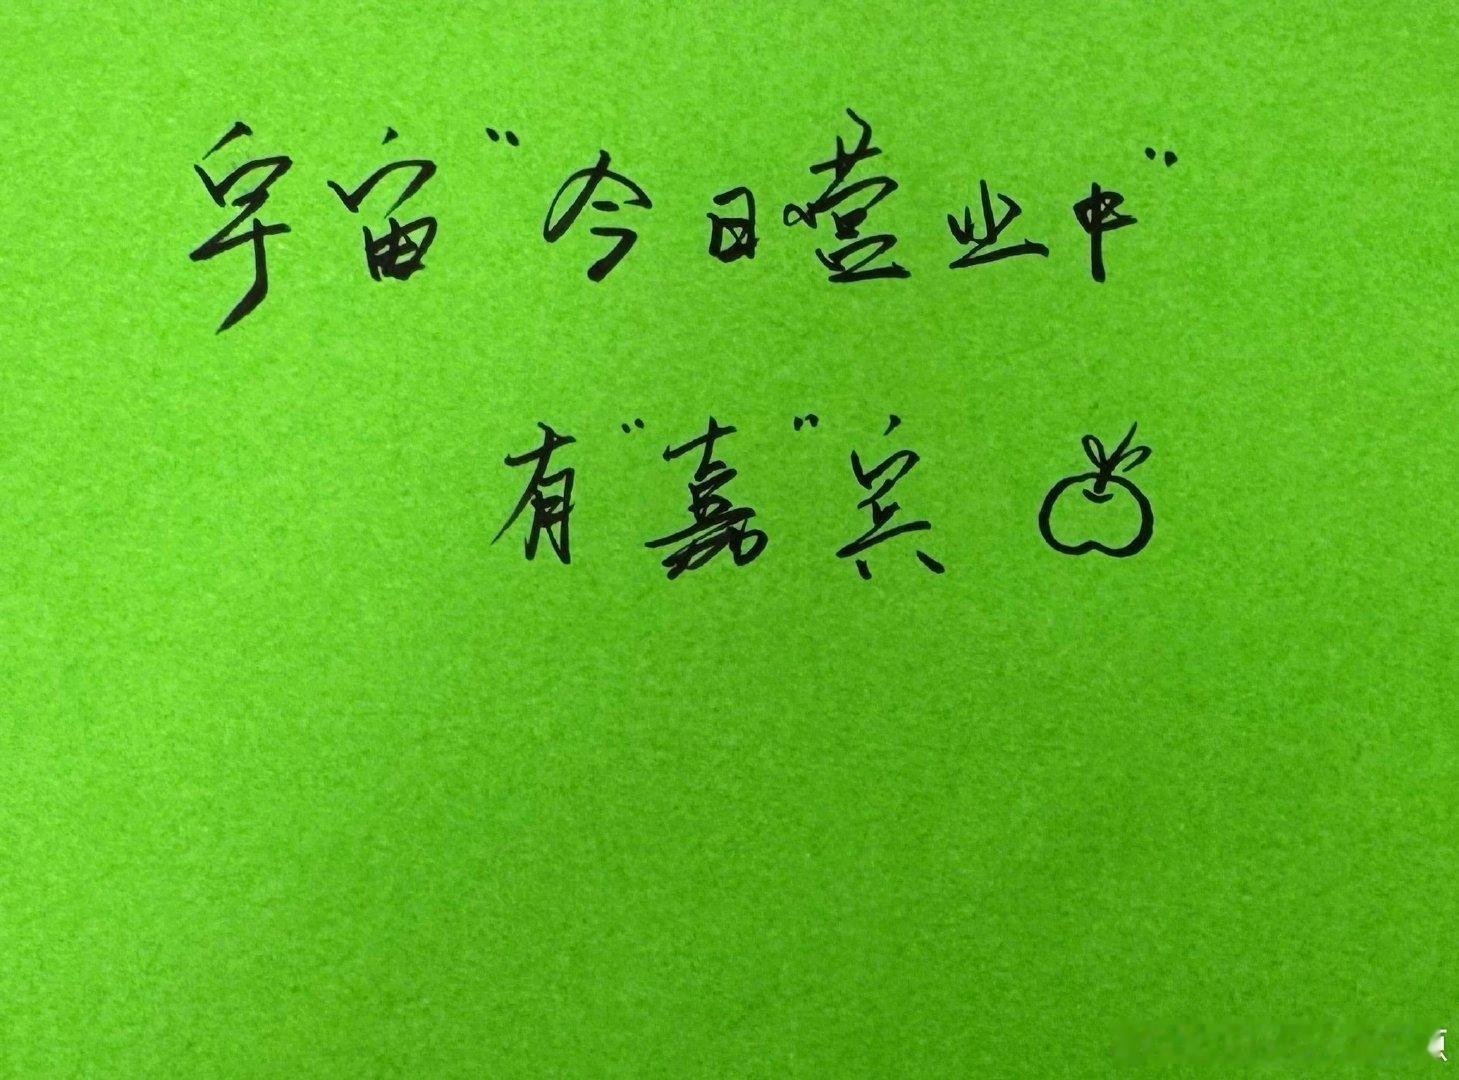 宇宙"今日营业中"
有"嘉"宾